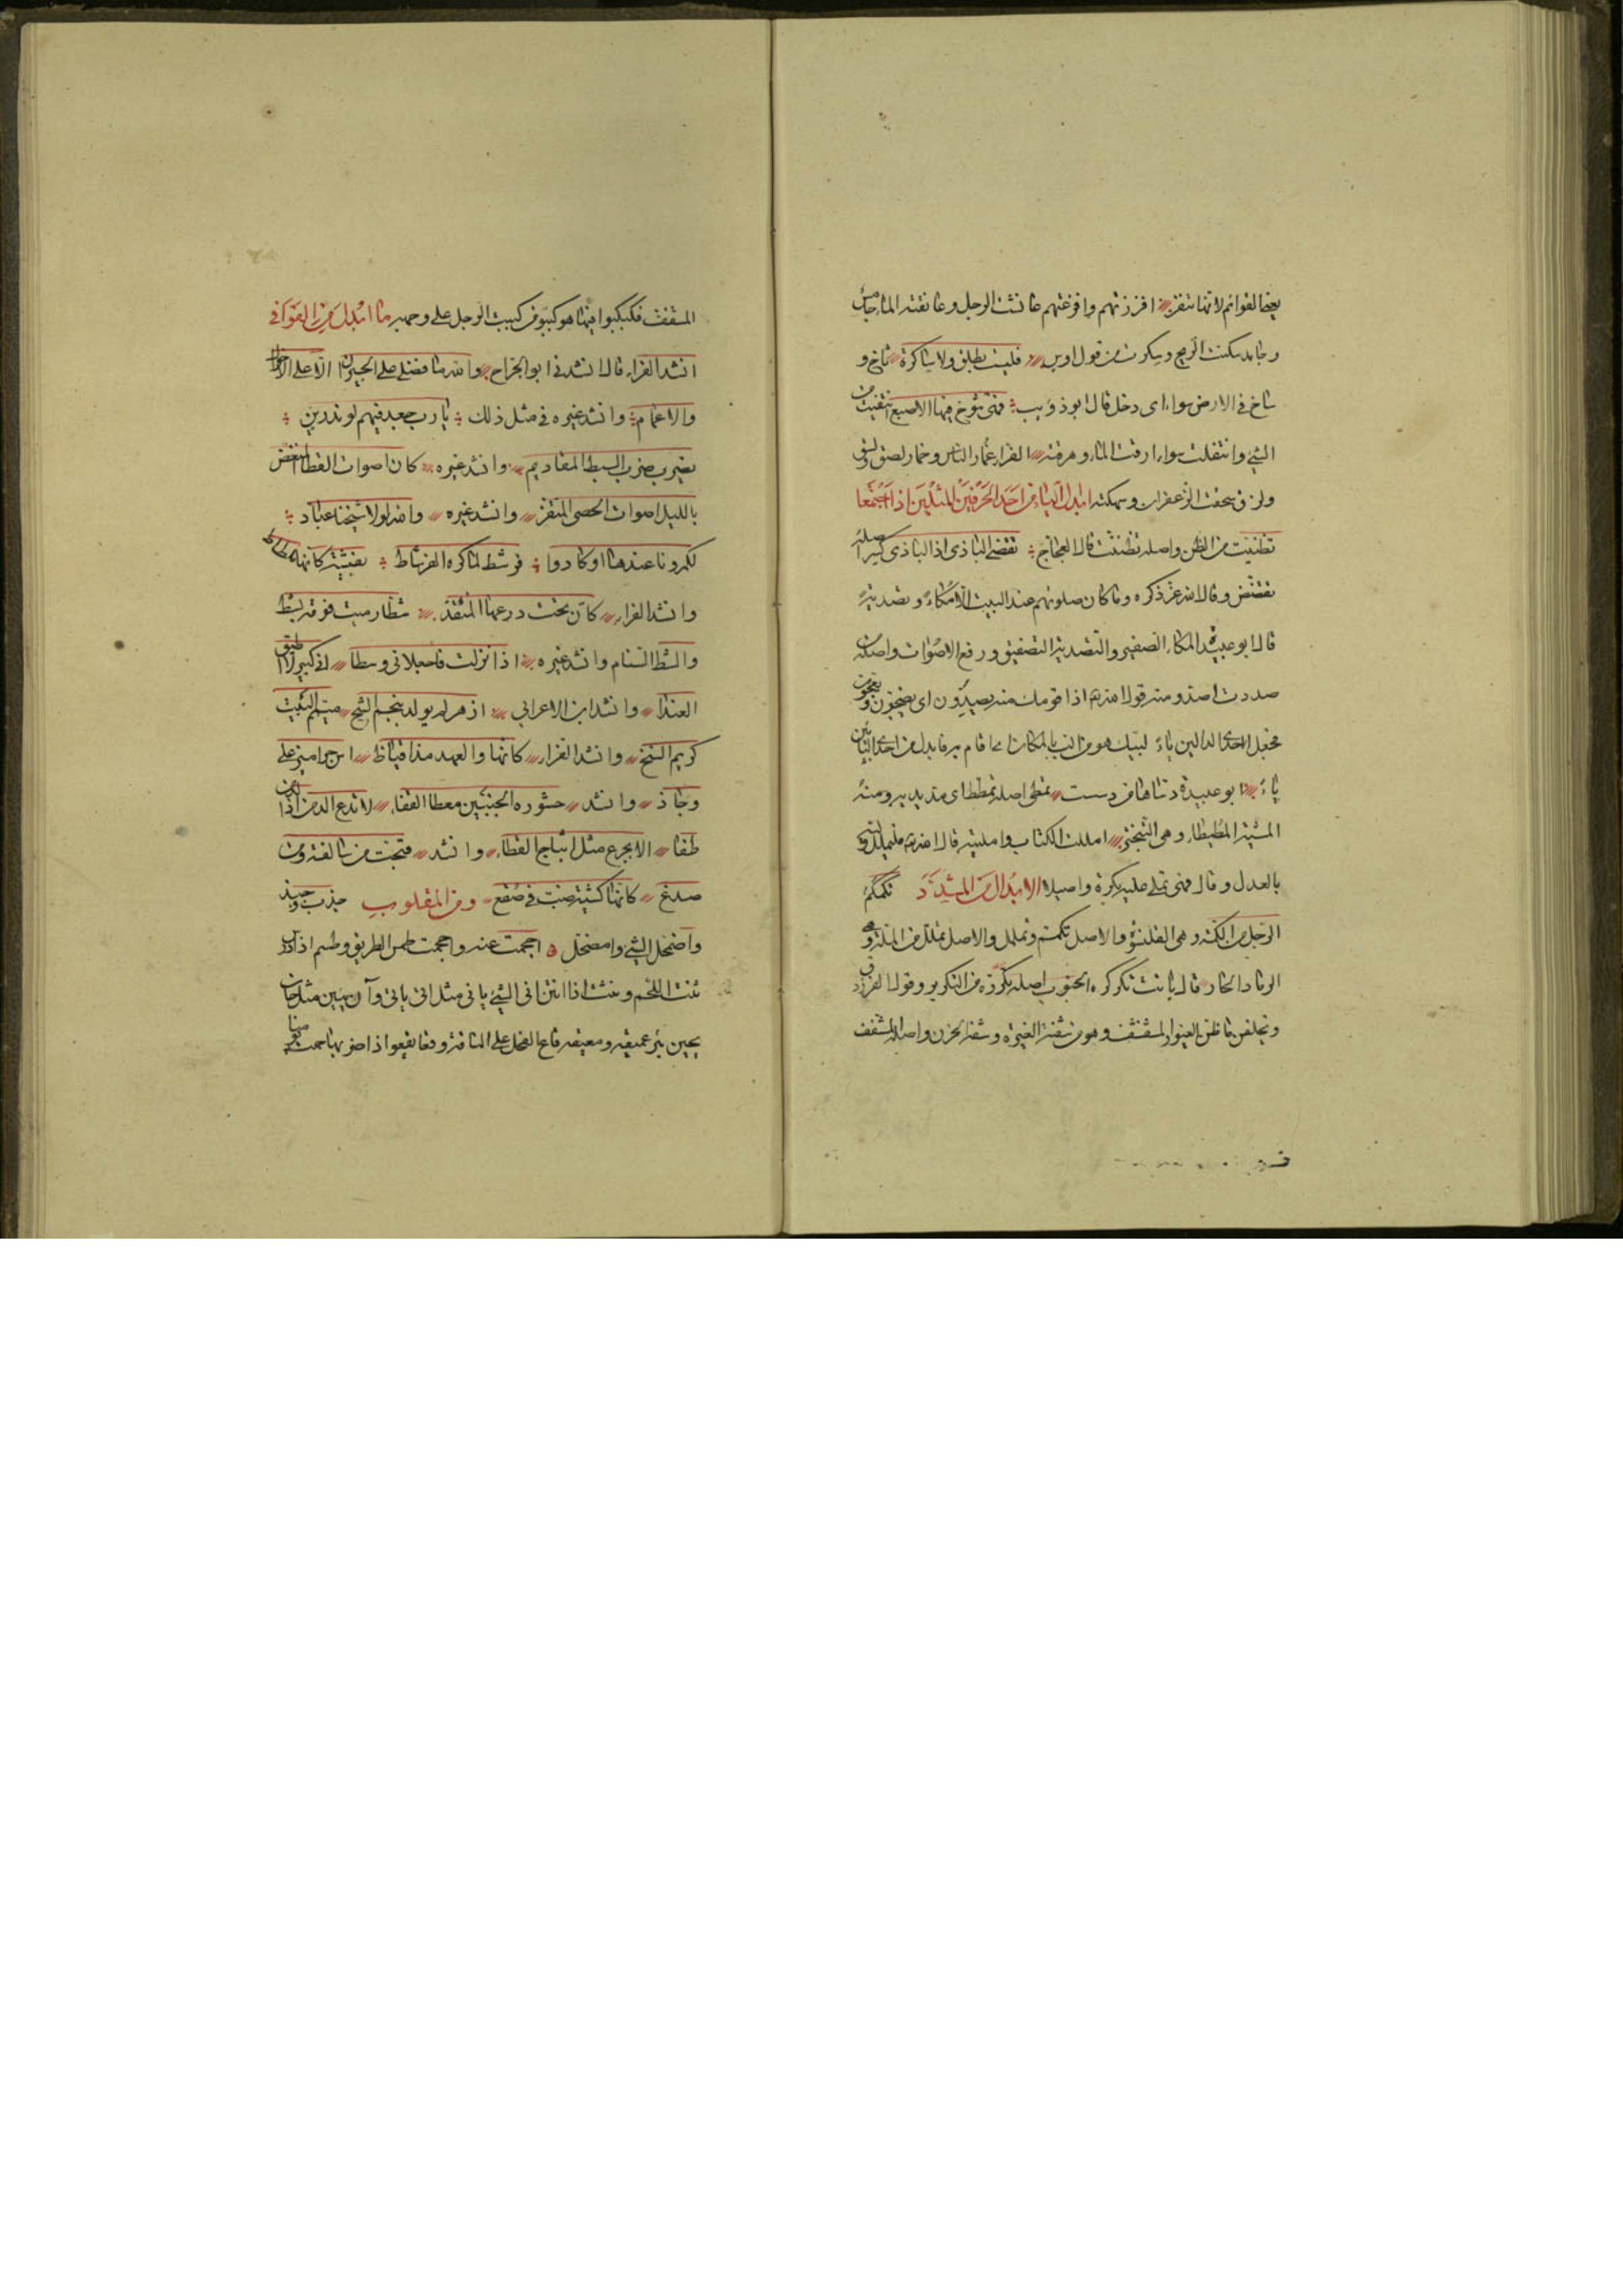 يعني القوائم لانها تنقز افززتهم وافزعتهم عانشت الرجل وعانقته الماحل
وجابد سكنت الريح وسكرت من قول اوس فليست بطلق ولا ساكرة ثاخ و
ساخ في الارض سواء اى دخل قال ابو ذويب فهى تثوخ فيها الاصبع انتفيت من
الشئ وانتقلت سواء ارقت الماء وهرقته الفراء غمار الناس وخمار لصق لسق
ولزق سحقت الزعفران وسهكته ابدال الياء من احد الحرفين المثلين اذا اجتمعا
تظنيت من الظن واصله تظننت قال العجاج تقضى البازى اذا البازى كسر اصله
تقضض وقال الله عز ذكره وما كان صلوتهم عند البيت الا مكاء وتصدية
قال ابو عبيدة المكاء الصفير والتصدية التصفيق ورفع الاصوات واصله من
صددت اصد ومنه قوله اذا قومك منه يصدون اى يضجون و يعجون
فجعل احدى الدالين ياء لبيك هو من الب بالمكان اذا قام به فابدل من احدى البائين
ياء ابو عبيدة دساها من دسست تمطى اصله تمطط اى مد يديه ومنه
المشية المطيطاء وهى التبختر امللت الكتاب وامليته قال فليملل وليه
بالعدل وقال فهى تملى عليه بكرة واصيلا الابدال من المشدد تكمكم
الرجل من الكمة وهى القلنسوة والاصل تكمم وتململ والاصل تملل من الملة وهى
الرماد الحار قال باتت تكركره الجنوب اصله تكرره من التكرير وقول الفرزدق
ويخلفن ما ظن الغيور المشفشف وهو من شفته الغيرة وشفه الحزن واصله المشفف
المشفف فكبكبوا فيها هو كببوا من كببت الرجل على وجهه ما ابدل من القوافى
انشد الفراء قال انشدنى ابو الجراح والله ما فضلى على الجيران الا على الاخوال
والاعمام وانشد غيره فى مثل ذلك يا رب جعد فيهم لو تدرين
يضرب ضرب السبط المقاديم وانشد غيره كان اصوات القطا المنقض
بالليل اصوات الحصى المنقز وانشد غيره والله لولا شيخنا عباد
لكمرونا عندها او كادوا فرشط لما كره الفرشاط بفيشة كانها ملطاط
وانشد الفراء كان تحت درعها المنقد شطا رميت فوقه بشط
والشط السنام وانشد غيره اذا نزلت فاجعلانى وسطا انى كبير لا اطيق
العندا وانشد ابن الاعرابى ازهر لم يولد بنجم الشح ميمم البيت
كريم السنخ وانشد الفراء كانها والعهد مذ اقياظ اس جراميز على
وجاذ وانشد حشورة الجنبين معطاء القفا لا تدع الدمن اذا الدمن
طفا الا بجرع مثل اثباج القطا وانشد قبحت من سالفة ومن
صدغ كانها كشية ضب فى صقع ومن المقلوب جذب وجبذ
واضمحل الشئ وامضحل احجمت عنه واجحمت طمس الطريق وطسم اذا درس
ثنت اللحم ونثت اذا انتن انى الشئ يانى مثل اتى ياتى وآن يئين مثل حان
يحين بئر عميقة ومعيقة قاع الفحل على الناقة وقعا يقعوا اذا ضربها